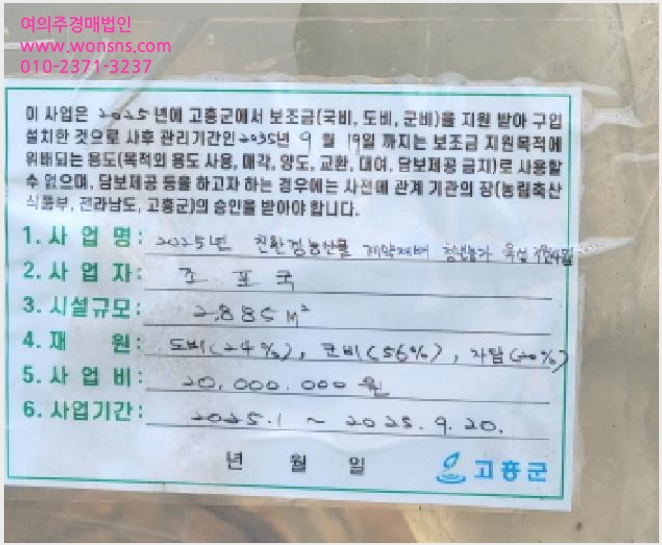 여의주경매법인
www.wonsns.com
010-2371-3237
이 사업은 2025년에 고흥군에서 보조금(국비, 도비, 군비)을 지원 받아 구입
설치한 것으로 사후 관리기간인 2035년 9월 19일 까지는 보조금 지원목적에
위배되는 용도(목적외 용도 사용, 매각, 양도, 교환, 대여, 담보제공 금지)로 사용할
수 없으며, 담보제공 등을 하고자 하는 경우에는 사전에 관계 기관의 장(농림축산
식품부, 전라남도, 고흥군)의 승인을 받아야 합니다.
1. 사 업 명 : 2025년 친환경농산물 계약재배 청년농가 육성
2. 사 업 자 : 조 포 국
3. 시설규모 : 2,885 M²
4. 재 원 : 도비(24%), 군비(56%), 자담(20%)
5. 사 업 비 : 20,000,000 원
6. 사업기간 : 2025.1 ~ 2025.9.20.
년 월 일
고흥군